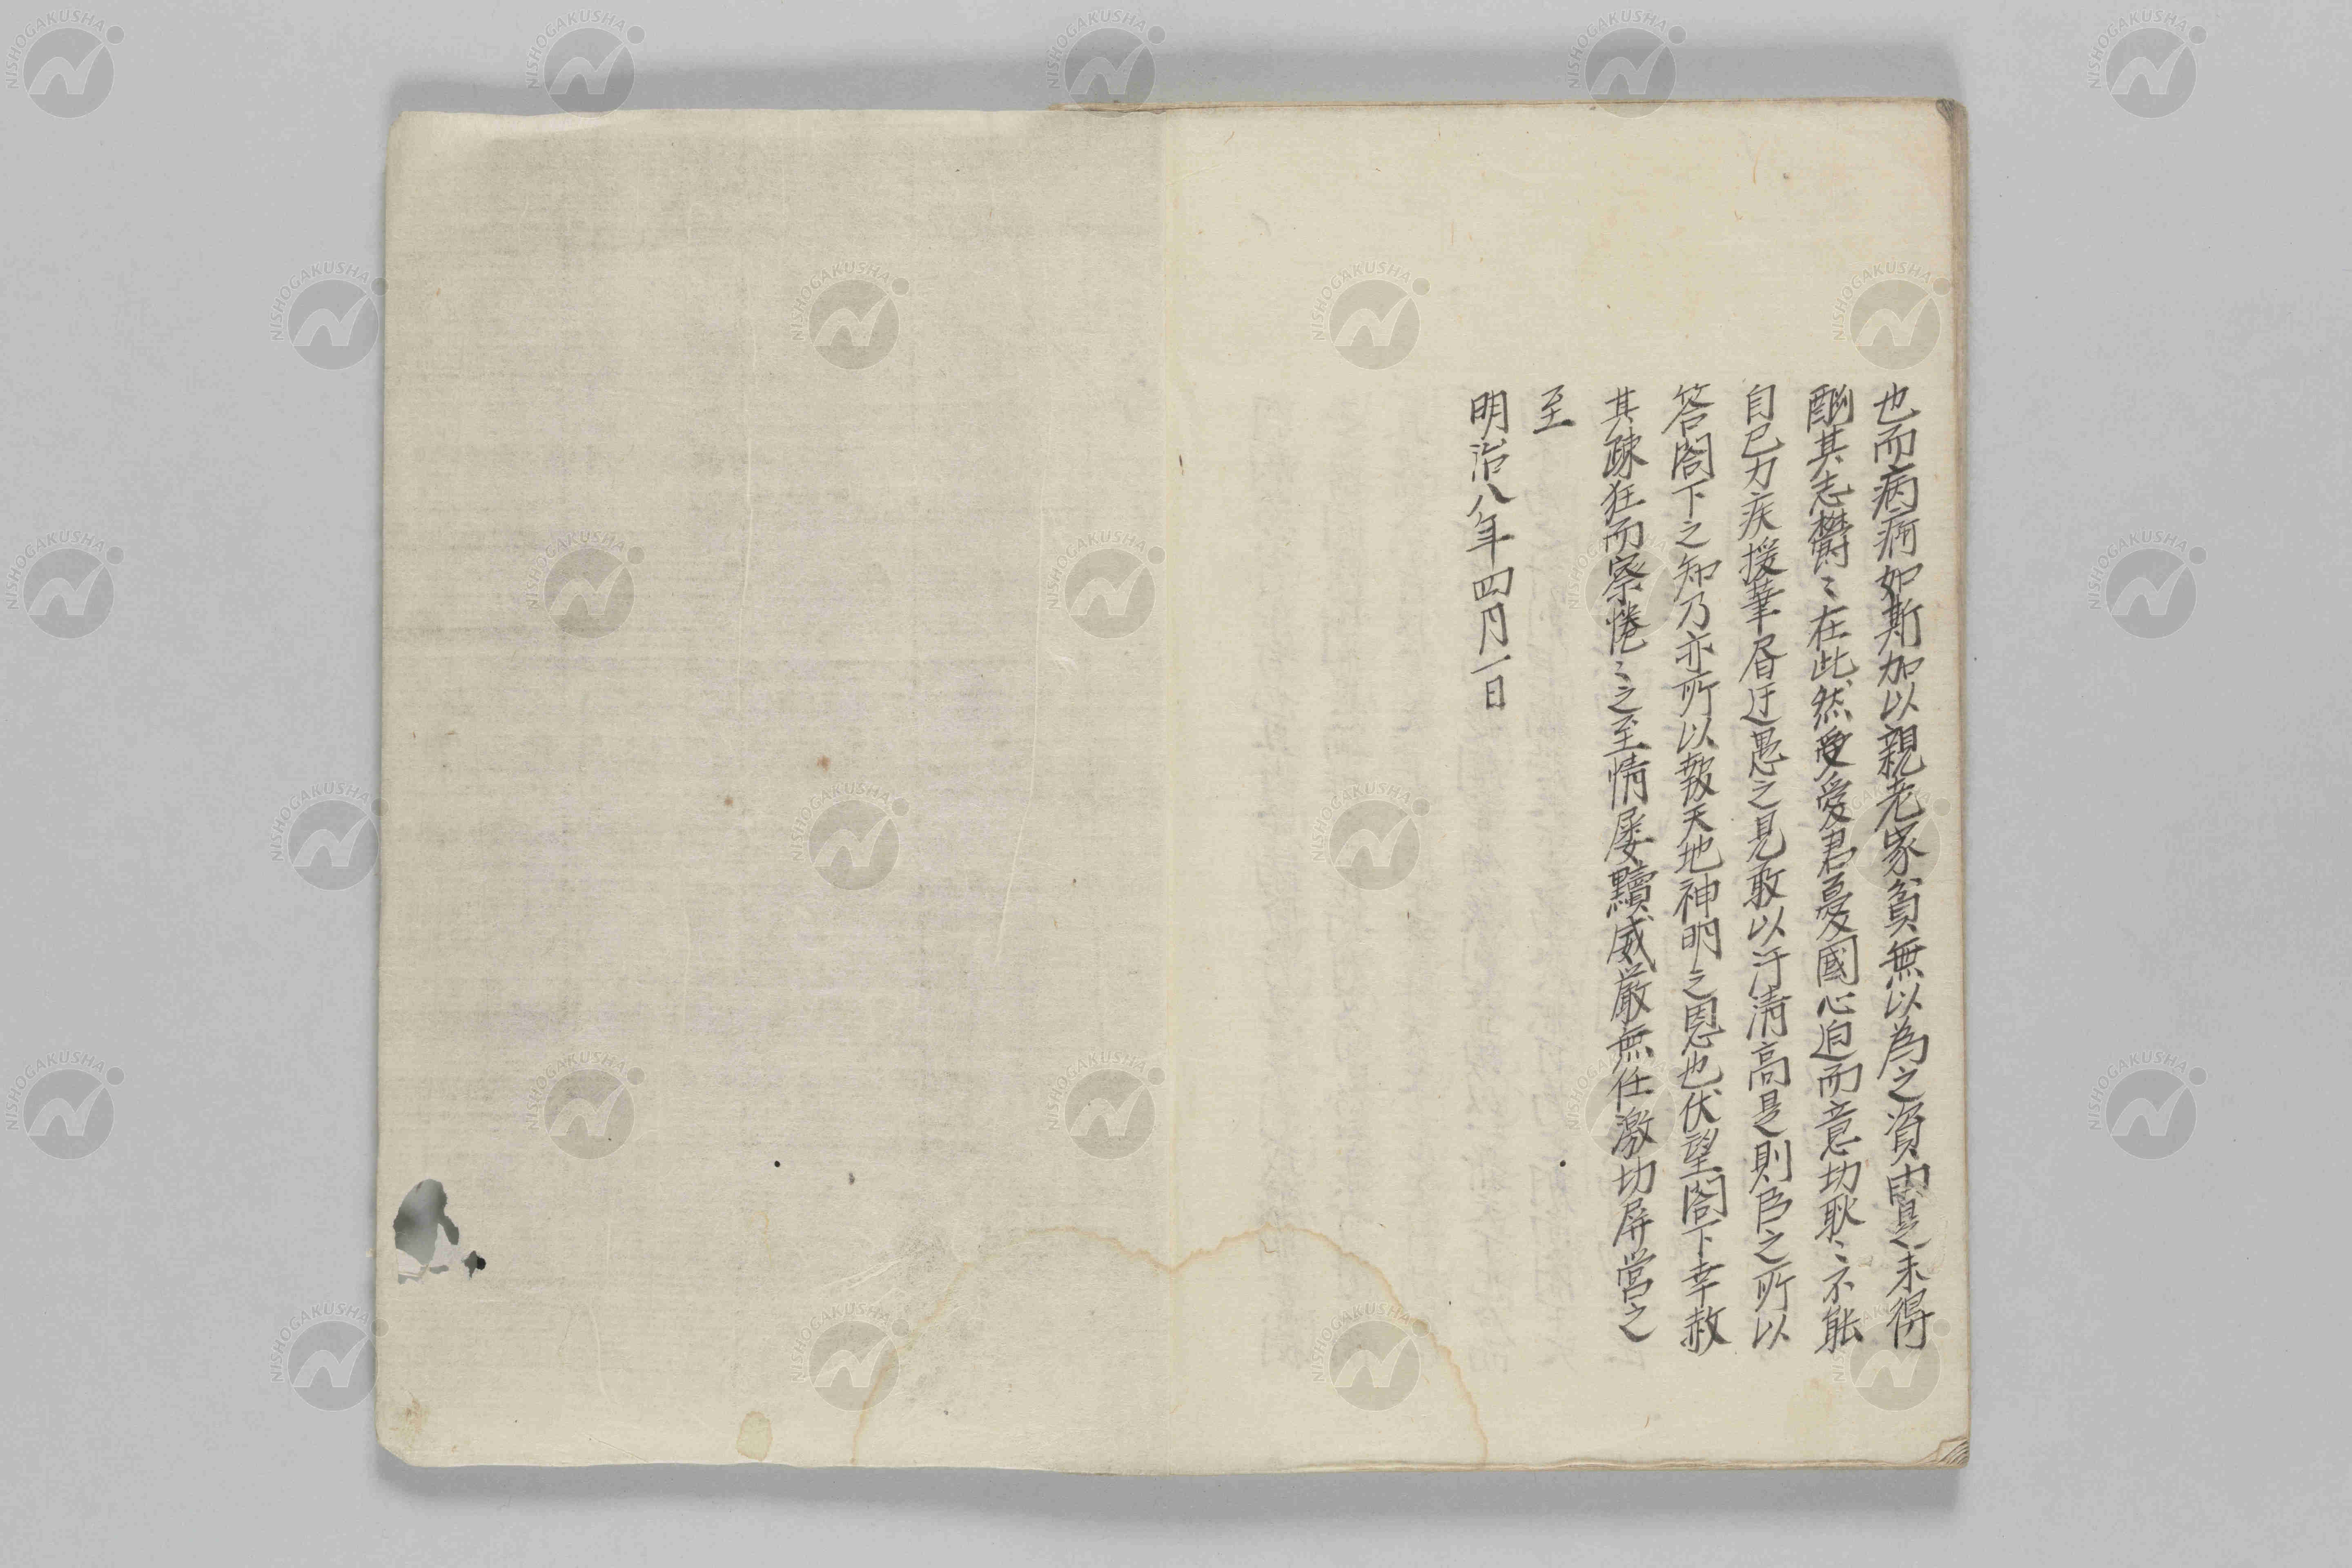 也而病痾如斯加以親老家貧無以為之資是未得
酬其志欝〻在此然愛君憂國心迫而意切耿〻不能
自已力疾援筆屠迂愚之見敢以汙清高是則臣之所以
答閤下之知乃亦所以報天地神明之恩也伏望閤下幸赦
其疎狂而察惓〻之至情屡黷威厳無任激切屏営之
至
明治八年四月一日